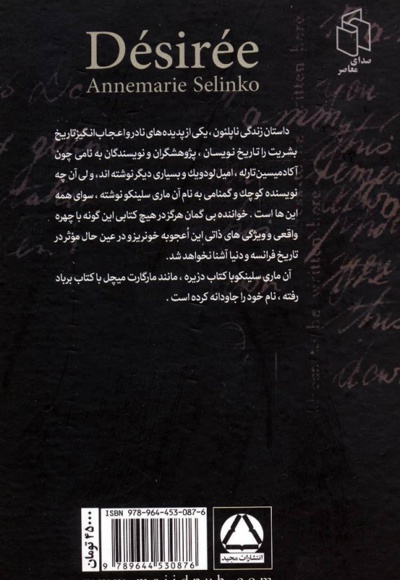 Désirée
Annemarie Selinko
صدای
معاصر
داستان زندگی ناپلئون، یکی از پدیده‌های نادر و اعجاب انگیز تاریخ
بشریت را تاریخ نویسان، پژوهشگران و نویسندگان به نامی چون
آکادمیسین تارله، امیل لودویک و بسیاری دیگر نوشته اند، و لی آن چه
نویسنده کوچک و گمنامی به نام آن ماری سلینکو نوشته، سوای همه
این ها است. خواننده بی گمان هرگز در هیچ کتابی این گونه با چهره
واقعی و ویژگی های ذاتی این اُعجوبه خونریز و در عین حال مؤثر در
تاریخ فرانسه و دنیا آشنا نخواهد شد.
آن ماری سلینکو با کتاب دزیره، مانند مارگارت میچل با کتاب برباد
رفته، نام خود را جاودانه کرده است.
۴۵۰۰۰ تومان
ISBN 978-964-453-087-6
9 789644 530876
انتشارات مجید